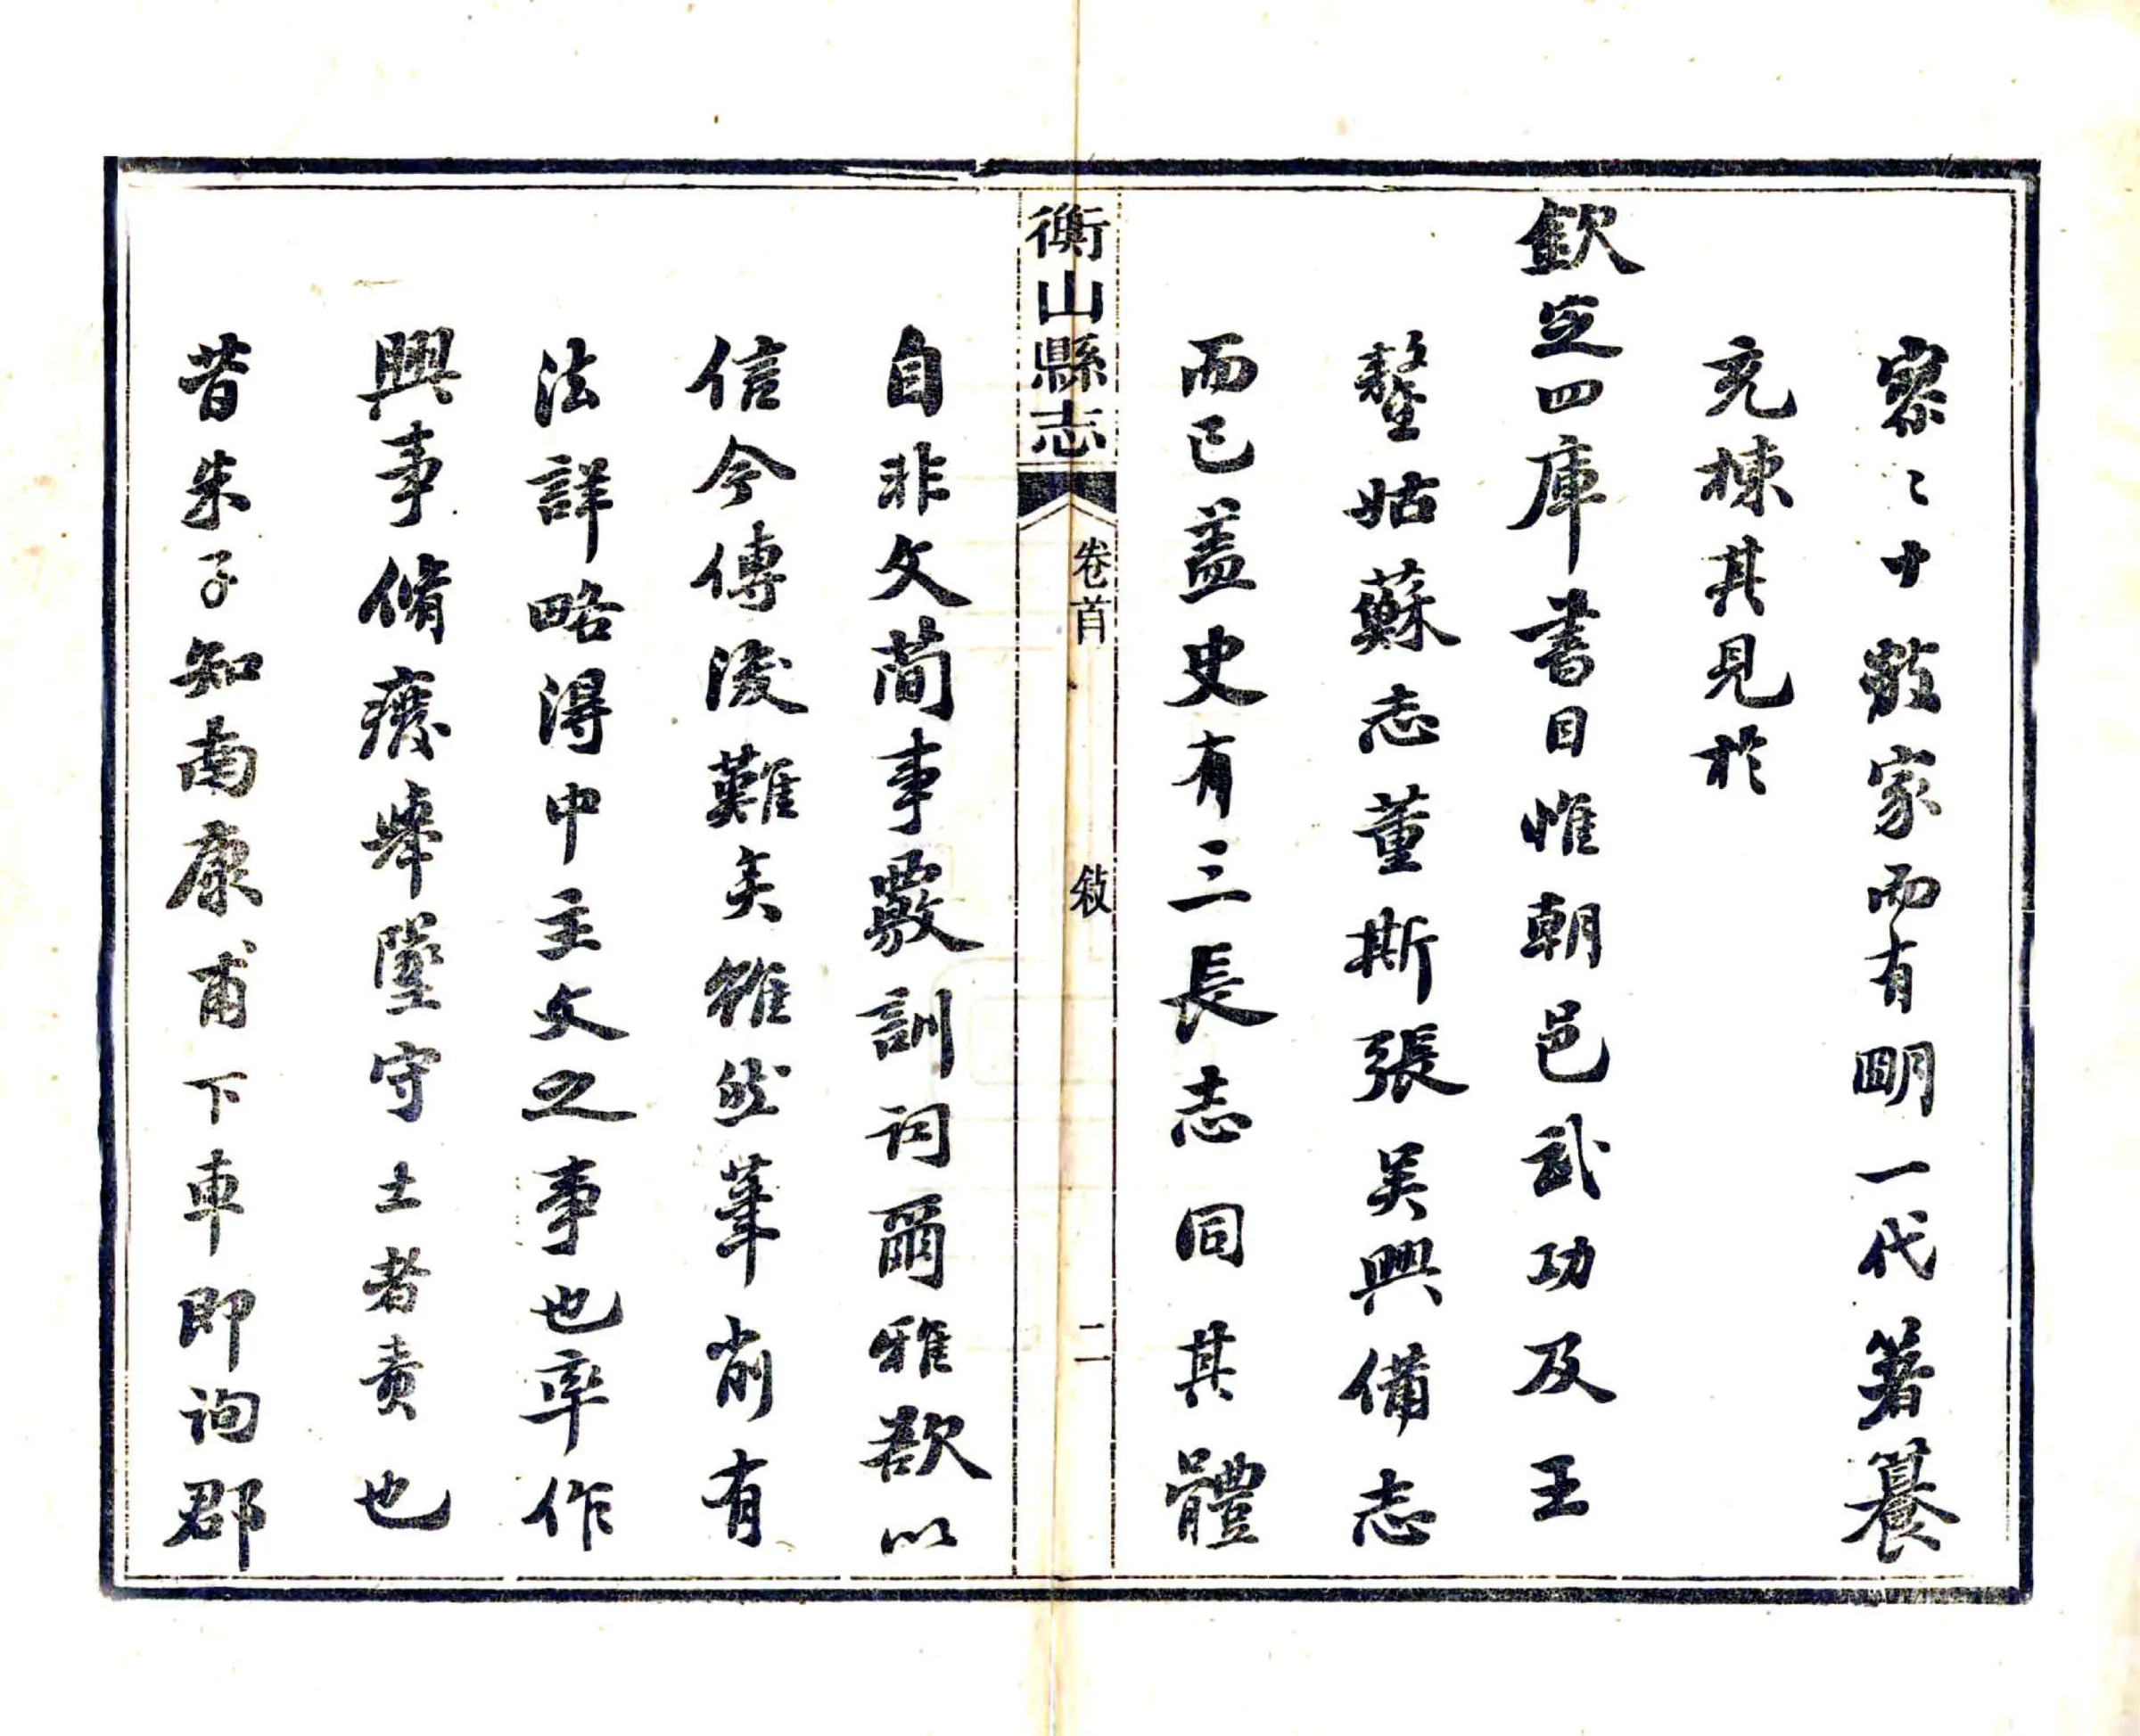 寥〻十數家而有明一代著纂
充棟其見於
欽定四庫書目惟朝邑武功及王
鏊姑蘇志董斯張吳興備志
而已蓋史有三長志同其體
衡山縣志 卷首 敍 二
自非文簡事覈訓詞爾雅欲以
信今傳後難矣雖然筆削有
法詳略得中主文之事也率作
興事脩廢舉墜守土者責也
昔朱子知南康甫下車即詢郡